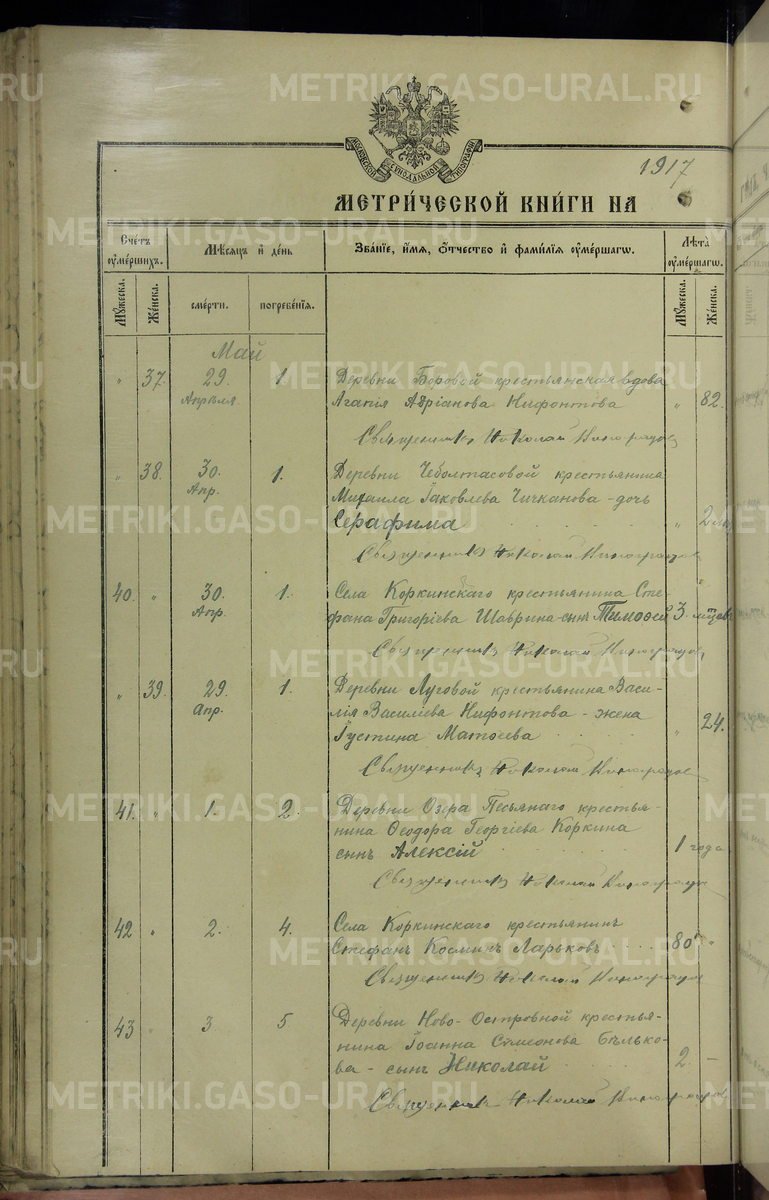 METRIKI.GASO-URAL.RU
МОСКОВСКОЙ СѴНОДАЛЬНОЙ ТИПОГРАФІИ
1917
МЕТРИ́ЧЕСКОЙ КНИ́ГИ НА
Сче́тъ ᲂу҆ме́ршихъ.
Мѣ́сяцъ и҆ де́нь
Зва́нїе, и҆́мѧ, ѻ҆́тчество и҆ фами́лїѧ ᲂу҆ме́ршагѡ.
Лѣ́та ᲂу҆ме́ршагѡ.
Мꙋ́жеска.
Же́нска.
сме́рти.
погребе́нїѧ.
Мꙋ́жеска.
Же́нска.
Май
" 37. 29. Апреля 1. Деревни Боровой крестьянская вдова
Агапія Адріанова Нифонтова " 82.
Священникъ Николай Виноградов
" 38. 30. Апр. 1. Деревни Чеболтасовой крестьянина
Михаила Іаковлева Чичканова - дочь
Серафима " 2
Священникъ Николай Виноградов
40. " 30. Апр. 1. Села Коркинскаго крестьянина Сте-
фана Григоріева Шаврина - сынъ Тимоѳей 3 мѣсяца "
Священникъ Николай Виноградов
" 39. 29. Апр. 1. Деревни Луговой крестьянина Васи-
лія Василіева Нифонтова - жена
Іустина Матѳеева " 24.
Священникъ Николай Виноградов
41. " 1. 2. Деревни Озера Песьянаго крестья-
нина Ѳеодора Георгіева Коркина
сынъ Алексій 1 года
Священникъ Николай Виноградов
42 " 2. 4. Села Коркинскаго крестьянинъ
Стефанъ Косминъ Ларьковъ 80 "
Священникъ Николай Виноградов
43 " 3. 5. Деревни Ново-Островной крестья-
нина Іоанна Симеонова Бѣлько-
ва - сынъ Николай 2. -
Священникъ Николай Виноградов